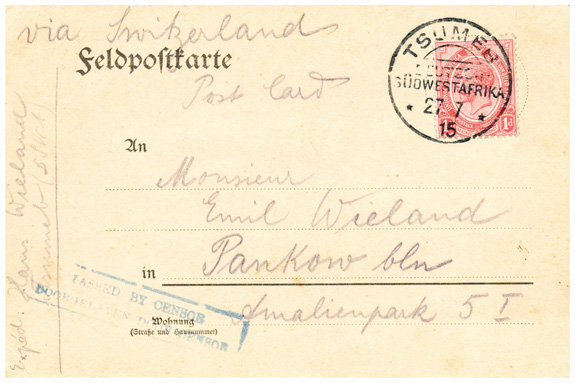 via Switzerland
Feldpostkarte
Post Card
TSUMEB
SÜDWESTAFRIKA
27 7
15
1d
An
Monsieur
Emil Wieland
Pankow bln
in
Amalienpark 5 I
Wohnung
(Straße und Hausnummer)
PASSED BY CENSOR
DOORGELATEN DOOR CENSOR
Expéd: Hans Wieland
Tsumeb